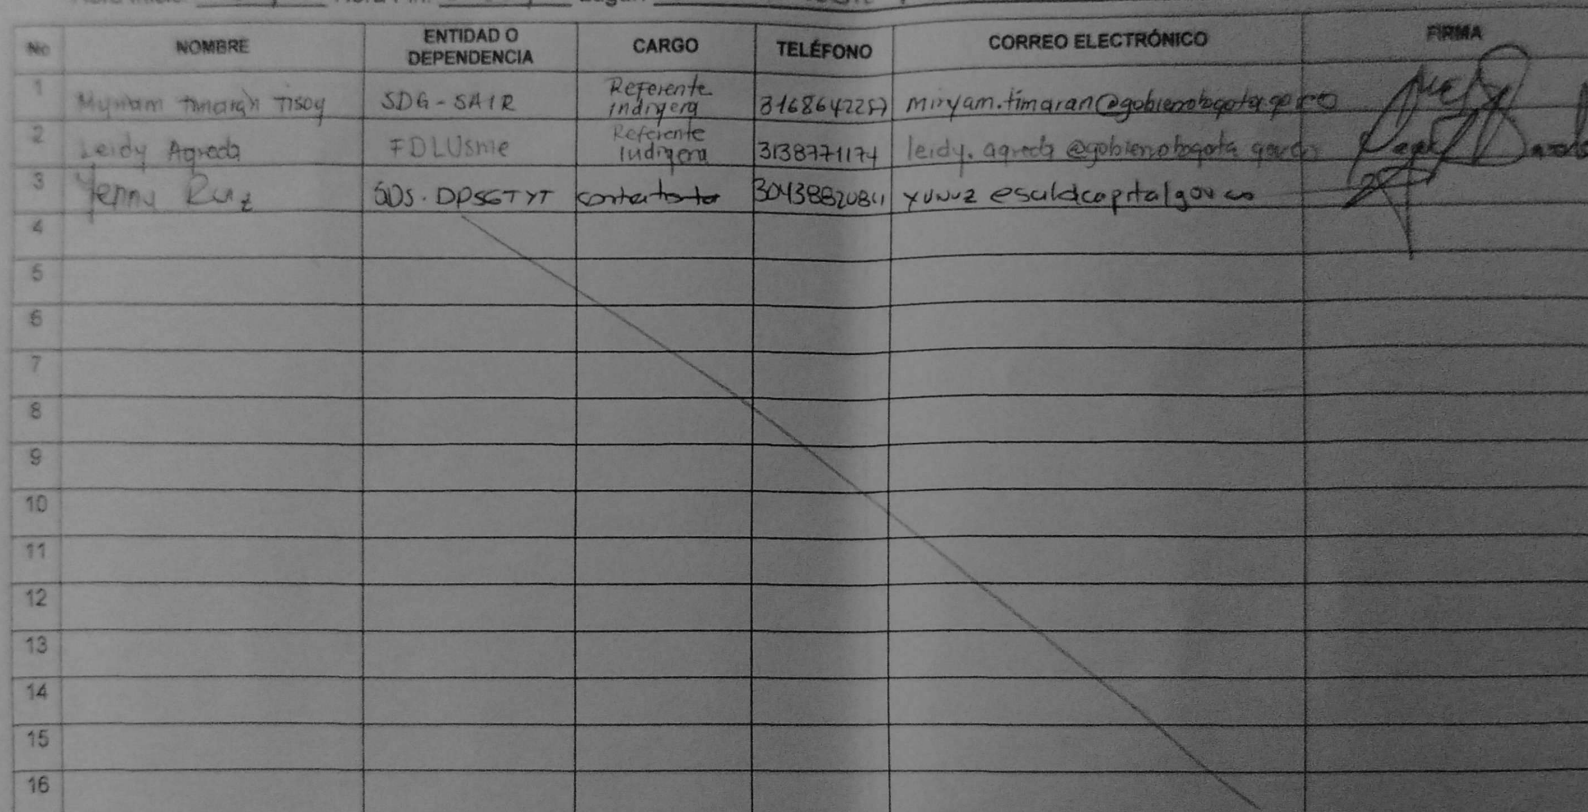 No NOMBRE ENTIDAD O DEPENDENCIA CARGO TELÉFONO CORREO ELECTRÓNICO FIRMA
1 Myriam Timarán Tisoy SDG-SAIR Referente indigena miryam.timaran@gobiernobogota.gov.co
2 Leidy Agreda FDLUsme Referente Indigena 3138771174 leidy.agreda@gobiernobogota.gov.co
3 Yenny Ruiz SDS. DPSGTYT contratista
4
5
6
7
8
9
10
11
12
13
14
15
16